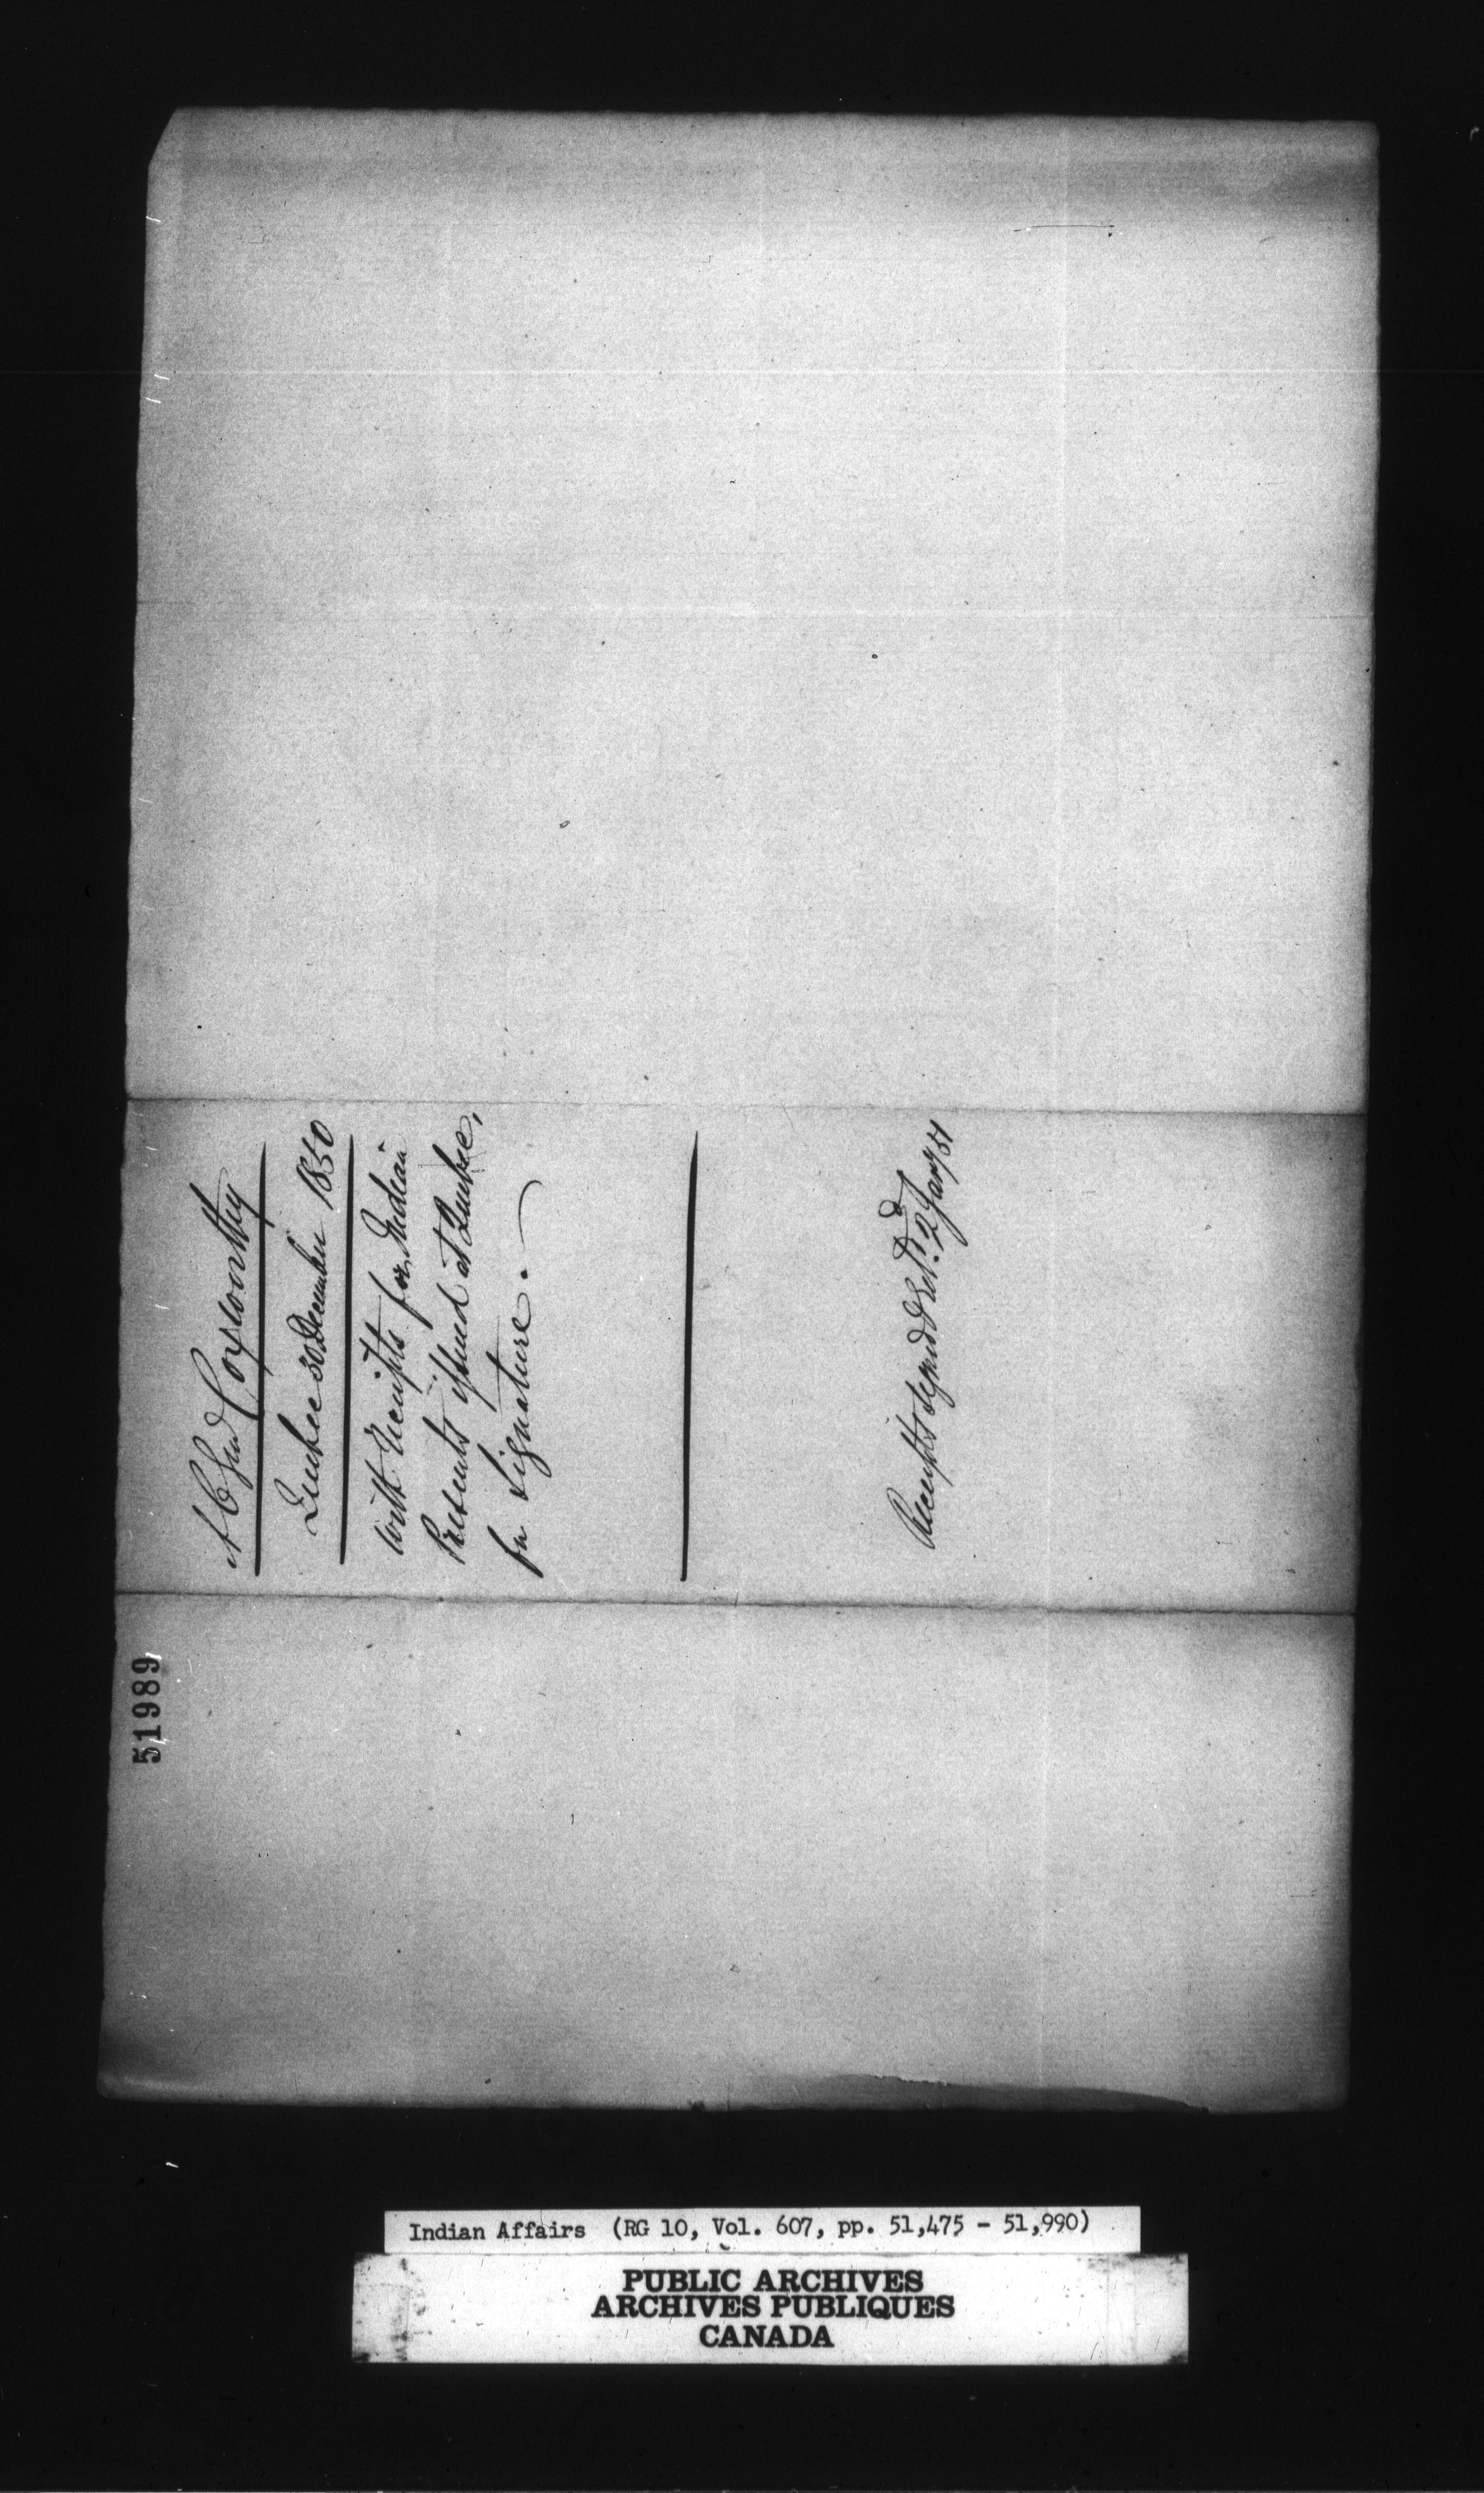 A C Genl Coxworthy
Quebec 30 December 1850
With Receipts for Indian
Presents issued at Quebec,
for Signature.
Receipts Signed & Retd. 2 Jany 51
51989
Indian Affairs (RG 10, Vol. 607, pp. 51,475 - 51,990)
PUBLIC ARCHIVES
ARCHIVES PUBLIQUES
CANADA